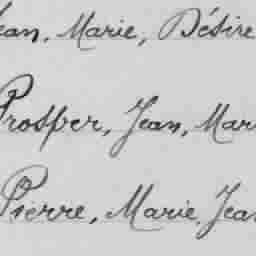 Jean, Marie, Désire
Prosper, Jean, Mari
Pierre, Marie, Jean